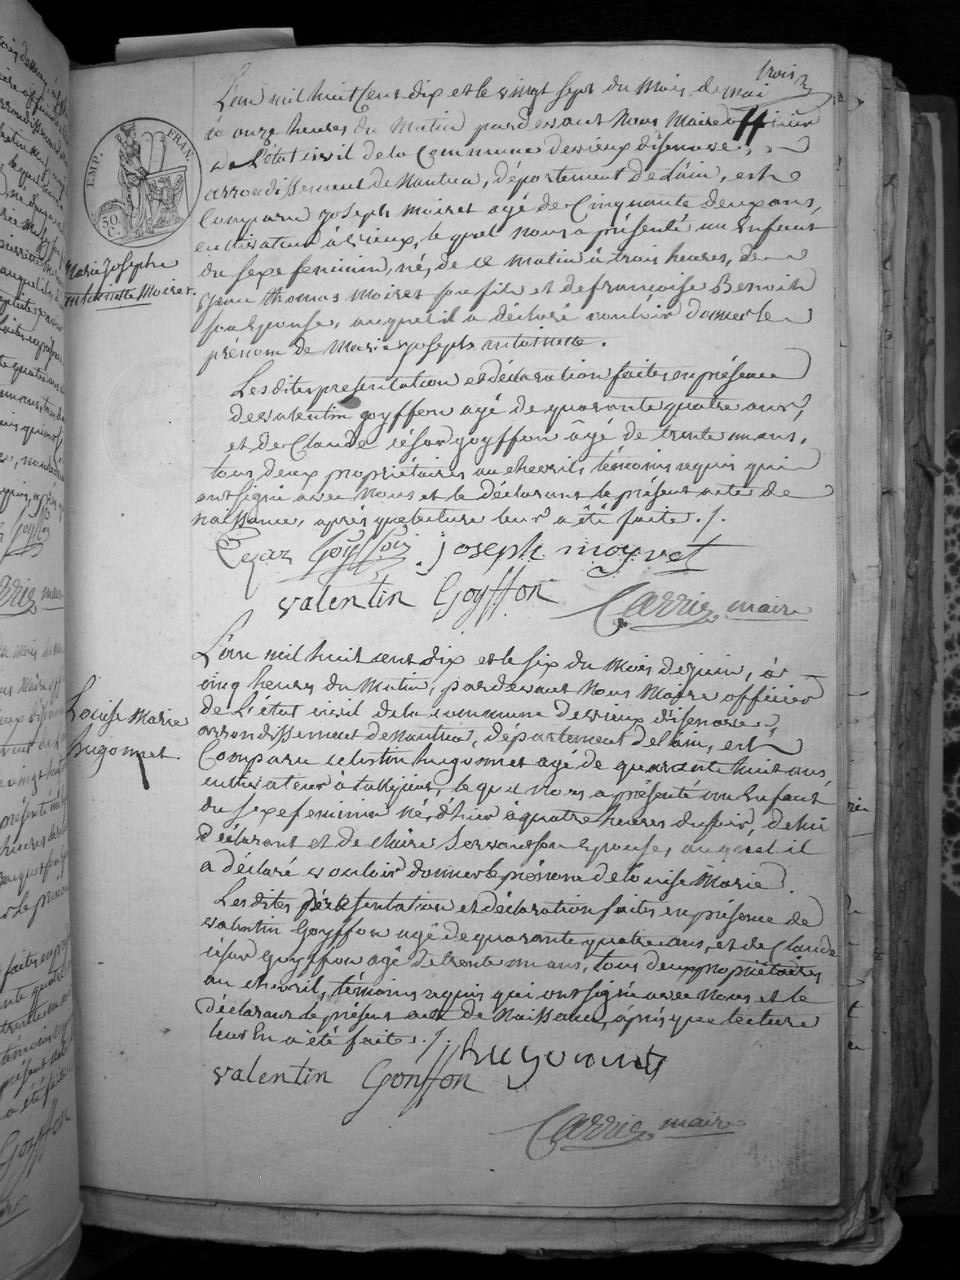 trois
EMP. FRAN.
50 C.
L'an mil huit Cent dix et le vingt sept du Mois de mai
à onze heures du Matin pardevant Nous Maire officier
de l'état civil de la Commune de vieux d'isenave,
arrondissement de Nantua, département de l'ain, est
Comparu joseph moiret agé de Cinquante deux ans,
cultivateur à vieux, le quel nous a présenté un Enfant
du sexe feminin, né, de ce matin à trois heures, de
jean thomas moiret son fils et de françoise Benoit
son Epouse, auquel il a déclaré vouloir donner le
prénom de Marie joseph antoinette.
Marie Josephe
antoinette Moiret.
Les dites presentation et déclaration faites en présence
de valentin goyffon agé de quarante quatre ans,
et de Claude césar goyffon âgé de trente un ans,
tous deux propriétaires au chevril, témoins requis qui
ont signé avec Nous et le déclarant le présent acte de
naissance, après que lecture leur a été faite ./.
Cezar Goyffon joseph moyret
valentin Goyffon Carrier maire
L'an mil huit cent dix et le six du Mois de juin, à
cinq heures du Matin, pardevant Nous Maire officier
de l'état civil de la commune de vieux d'isenave,
arrondissement de nantua, département de l'ain, est
Comparu celestin hugonnet agé de quarante huit ans
cultivateur à, le quel Nous a présenté un Enfant
du sexe feminin né, d'hier à quatre heures du soir, de lui
déclarant et de claire son Epouse, auquel il
a déclaré vouloir donner le prénom de Louise Marie.
Louise Marie
hugonnet.
Les dites présentation et déclaration faites en présence de
valentin Goyffon agé de quarante quatre ans, et de Claude
césar goyffon agé de trente un ans, tous deux propriétaires
au chevril, témoins requis qui ont signé avec Nous et le
déclarant le présent acte de Naissance, après que lecture
leur En a été faite ./. hugonnet
valentin Goyffon
Carrier maire